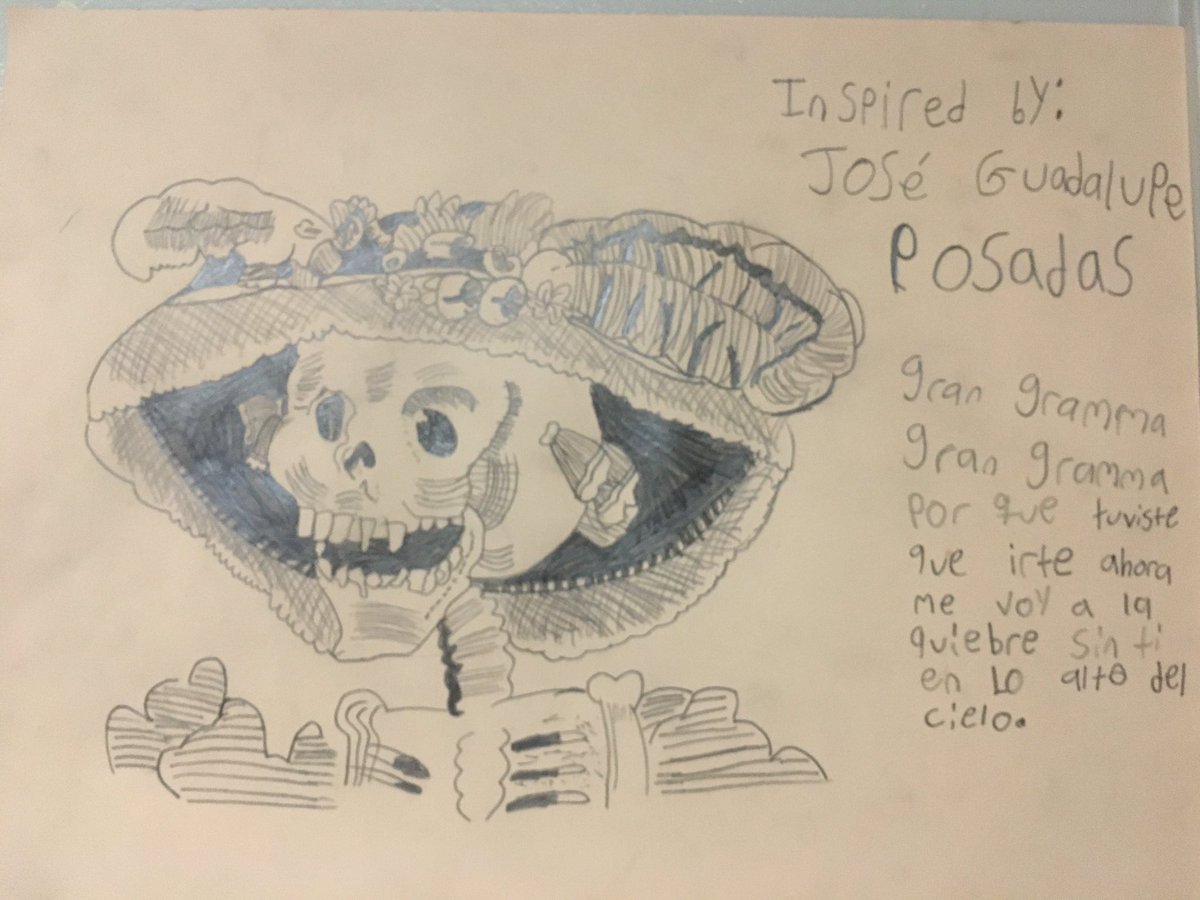 Inspired by:
José Guadalupe
Posadas
gran gramma
gran gramma
por que tuviste
que irte ahora
me voy a la
quiebre sin ti
en lo alto del
cielo.